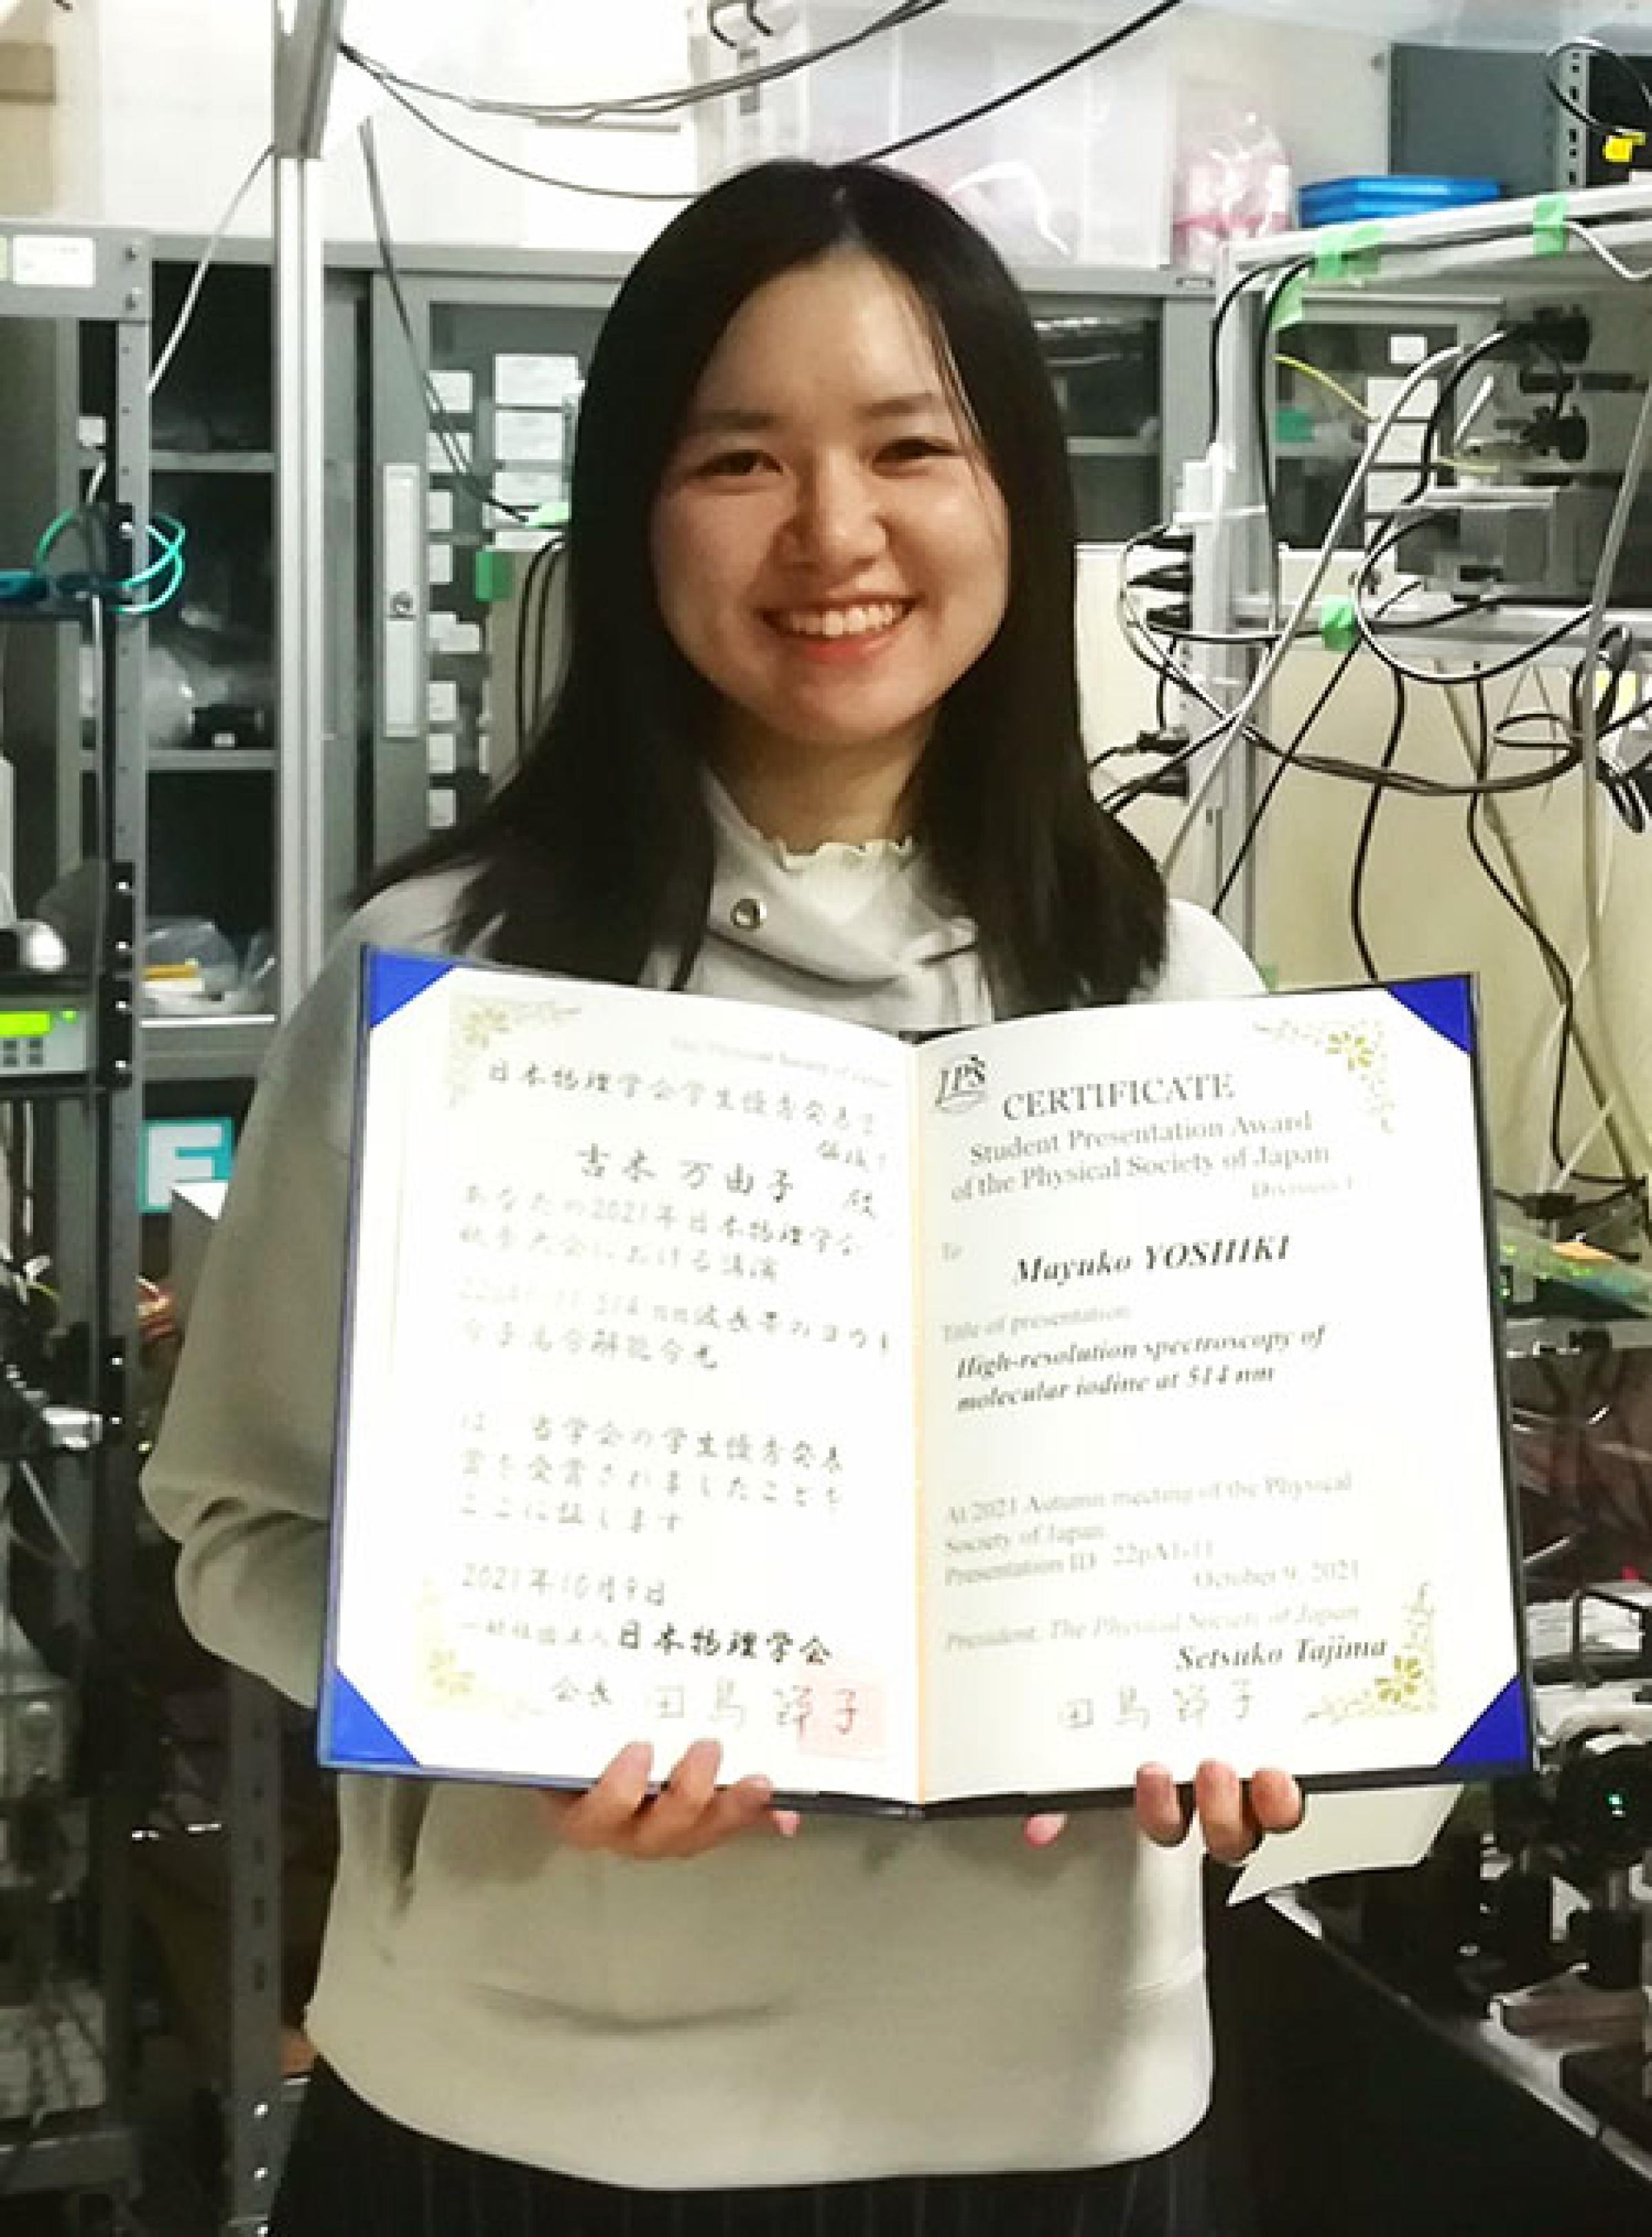 日本物理学会学生優秀発表賞
吉木 万由子 殿
あなたの2021年日本物理学会
秋季大会における講演
514 nm波長帯のヨウ素
分子高分解能分光
は 当学会の学生優秀発表
賞を受賞されましたことを
ここに証します
2021年10月9日
一般社団法人日本物理学会
会長 田島 節子
JPS
CERTIFICATE
Student Presentation Award
of the Physical Society of Japan
Division 1
To
Mayuko YOSHIKI
Title of presentation
High-resolution spectroscopy of
molecular iodine at 514 nm
At 2021 Autumn meeting of the Physical
Society of Japan
Presentation ID 22pA1-11
October 9, 2021
President, The Physical Society of Japan
Setsuko Tajima
田島 節子
E